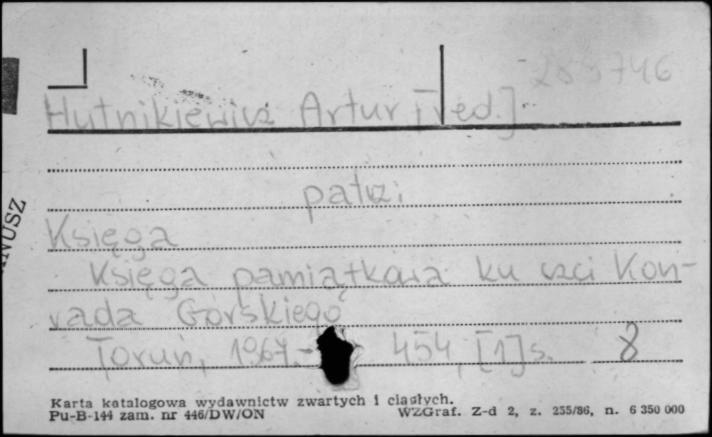 283746
Hutnikiewicz Artur [red.]
patrz:
Księga
Księga pamiątkowa ku czci Kon-
rada Górskiego
Toruń, 1967.- 454, [1] s. 8
Karta katalogowa wydawnictw zwartych i ciągłych.
Pu-B-144 zam. nr 446/DW/ON WZGraf. Z-d 2, z. 255/86, n. 6 350 000
NUSZ